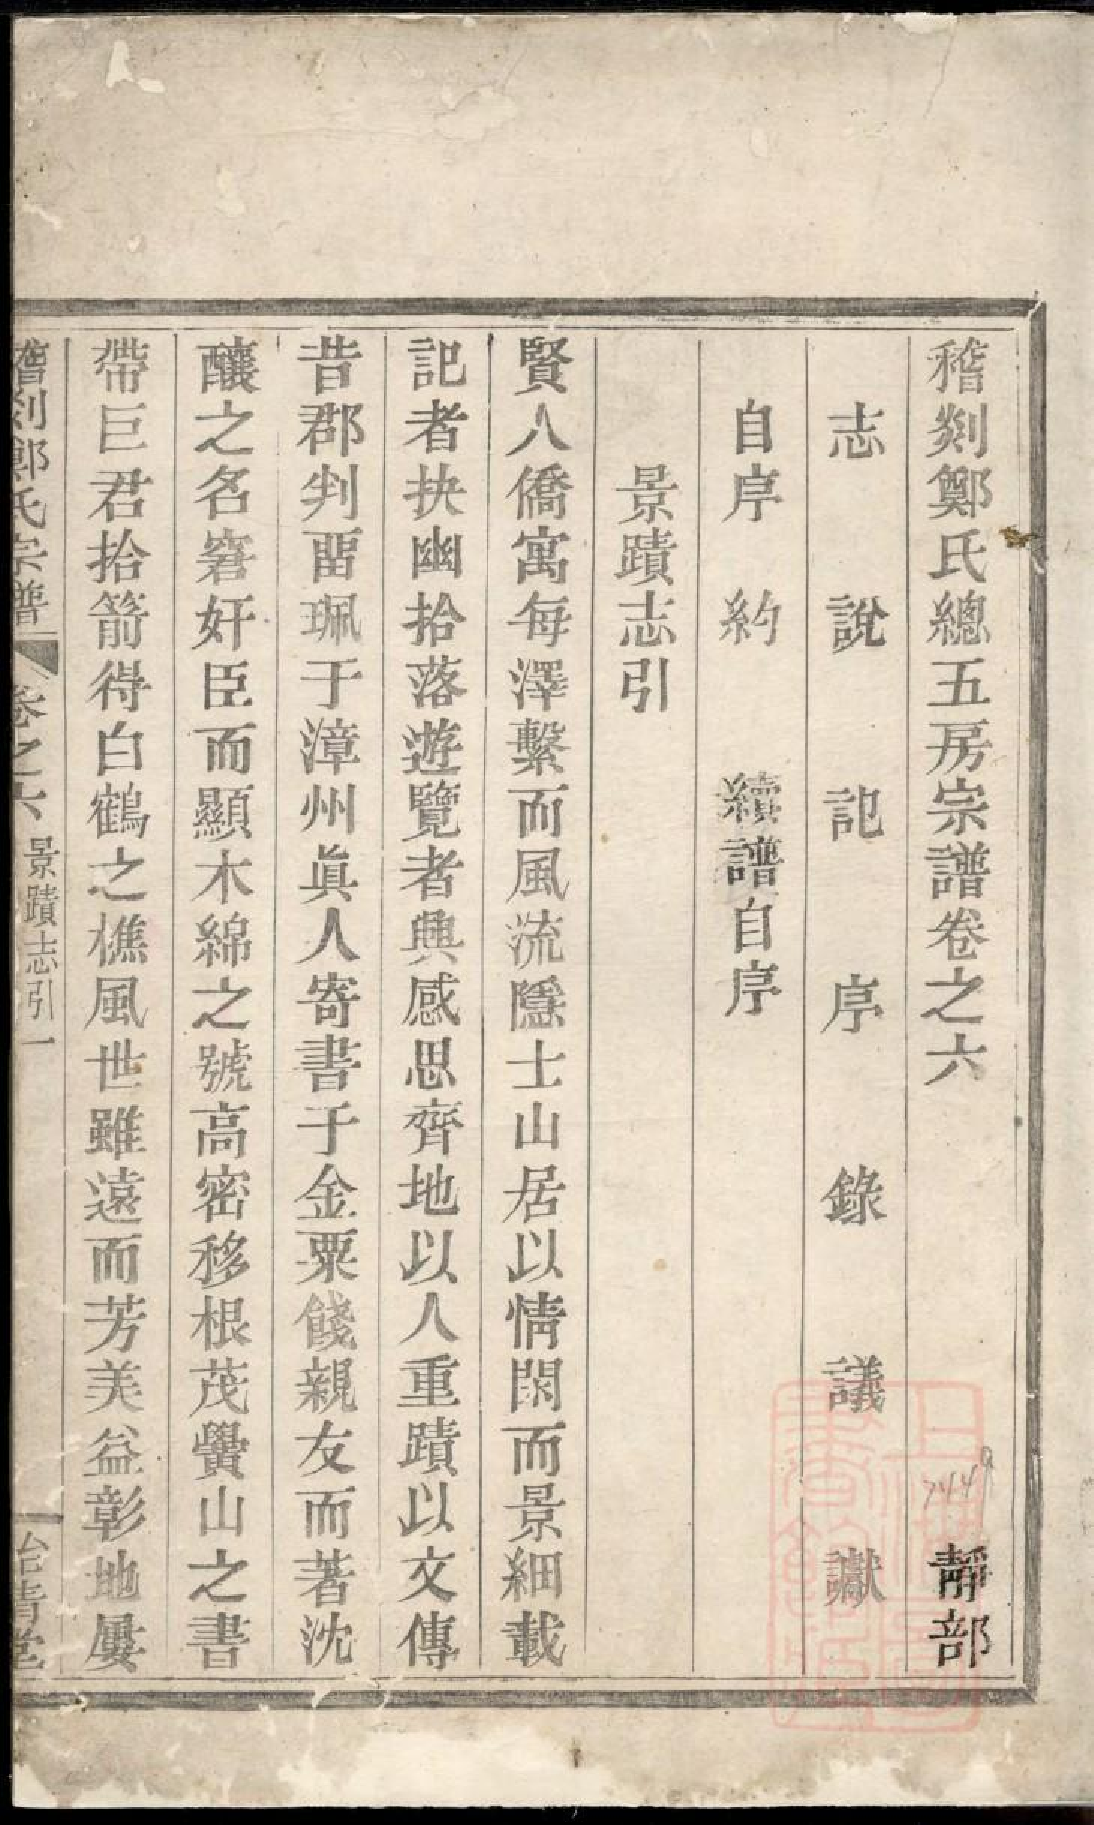 稽剡鄭氏總五房宗譜卷之六 靜部
志 說 記 序 錄 議 讞
自序 約 續譜自序
景蹟志引
賢人僑寓每澤繫而風流隱士山居以情閑而景細載
記者抉幽拾落遊覽者興感思齊地以人重蹟以文傳
昔郡判畱珮于漳州眞人寄書于金粟餞親友而著沈
釀之名窘奸臣而顯木綿之號高密移根茂黌山之書
帶巨君拾箭得白鶴之樵風世雖遠而芳美益彰地屢
稽剡鄭氏宗譜 卷之六 景蹟志引 一
7449